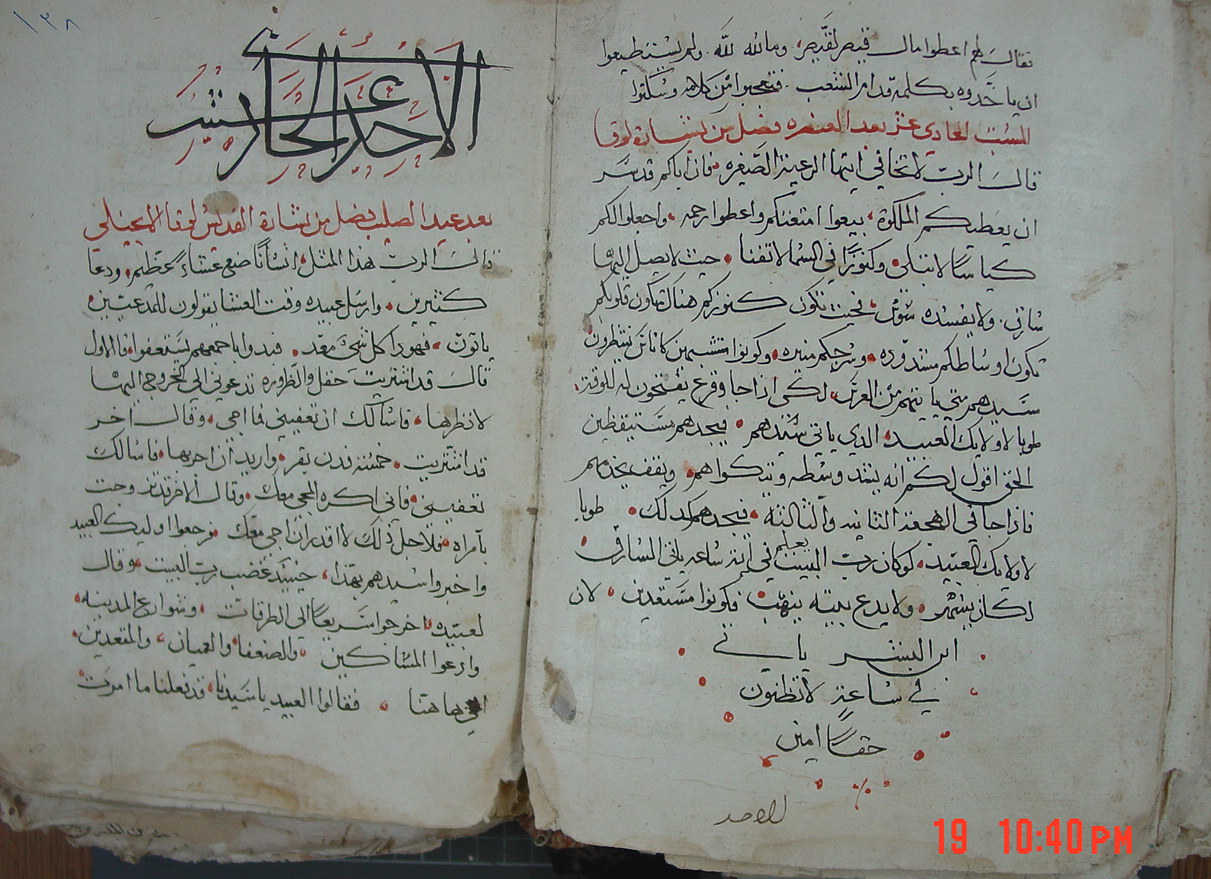 فقال لهم اعطوا مال قيصر لقيصر، وما لله لله. ولم يستطيعوا
ان ياخدوه بكلمه قدام الشعب. فتعجبوا من كلامه وسكتوا
السبت الحادي عشر بعد العنصره فصل من بشارة لوقا
قال الرب لا تخافي ايتها الرعية الصغيره فان اباكم قد سر
ان يعطيكم الملكوة، بيعوا امتعتكم واعطوا رحمه واجعلوا لكم
كياسًا لا تبلى وكنوزًا في السما لا تفنا حيت لا يصل اليها
سارق. ولا يفسده سوس، فحيت تكون كنوزكم هناك تكون قلوبكم
تكون اوساطكم مشدوده، وسرجكم منيره، وكونوا متشبهين كاناس ينتظرون
سيدهم متي ياتيهم من العرس، لكي اذا جا وقرع يفتحون له للوقة
طوبا لاولايك العبيد الدي ياتي سيدهم فيجدهم مستيقظين
الحق اقول لكم انه يشد وسطه ويتكواهم ويقف يخدمهم
فاذا جا في الهجعة التانيه والتالته فيجدهم كدلك طوبا
لاولايك العبيد لوكان رب البيت يعلم في اية ساعه ياتي السارق
لكان يسهر ولا يدع بيته ينهب فكونوا مستعدين لان
ابن البشر ياتي
في ساعة لا تظنون
حقًا امين
للاحد
١٣٨
الاحد الحادي عشر
بعد عيد الصليب فصل من بشارة القديس لوقا الانجيلي
قال الرب هذا المتل، انسانًا صنع عشاء عظيم ودعا
كتيرين، وارسل عبيده وقت العشا يقولون للمدعيين
ياتون، فهودا كل شي معد فبدوا باجمعهم يستعفوا فالاول
قال قد اشتريت حقل والظروره تدعوني الى الخروج اليها
لانظرها، فاسالك ان تعفيني فما اجي وقال اخر
قد اشتريت خمسة فدن بقر واريد ان اجربها فاسالك
تعفيني فاني اكره المجي معك وقال الاخر تزوجت
بامراه فلاجل ذلك لا اقدر ان اجي معك فرجعوا اوليك العبيد
واخبروا سيدهم بهذا، حينيد غضب رب البيت وقال
لعبيده اخرجوا سريعًا الى الطرقات وشوارع المدينه
وادعوا المساكين والضعفا والعميان والمقعدين
الي هاهنا فقالوا العبيد يا سيدنا قد فعلنا ما امرت
19 10:40 PM